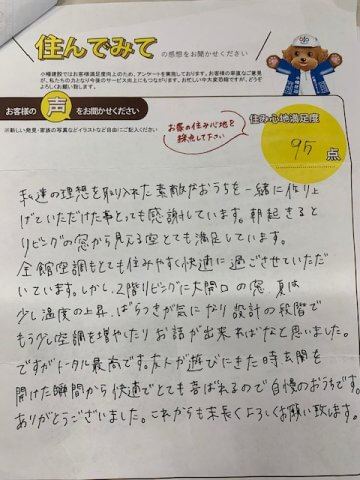 住んでみて の感想をお聞かせください
小種建設ではお客様満足度向上のため、アンケートを実施しております。お客様の率直なご意見
が、私たちの力となり今後のサービス向上にもつながります。お忙しい中大変恐縮ですが、どうぞ
よろしくお願い致します。
お客様の 声 をお聞かせください
※新しい発見・家族の写真などイラストなど自由にご記入ください
お家の住み心地を
採点して下さい
住み心地満足度
95 点
私達の理想を取り入れた素敵なおうちを一緒に作り上
げていただけた事とっても感謝しています。朝起きると
リビングの窓から見える空とても満足しています。
全館空調もとても住みやすく快適に過ごさせていただ
いています。しかし、2階リビングに大開口の窓、夏は
少し温度の上昇、ばらつきが気になり設計の段階で
もう少し空調を増やしたりお話が出来ればなと思いました。
ですがトータル最高です。友人が遊びにきた時玄関を
開けた瞬間から快適でとても喜ばれるので自慢のおうちです。
ありがとうございました。これからも末長くよろしくお願い致します。